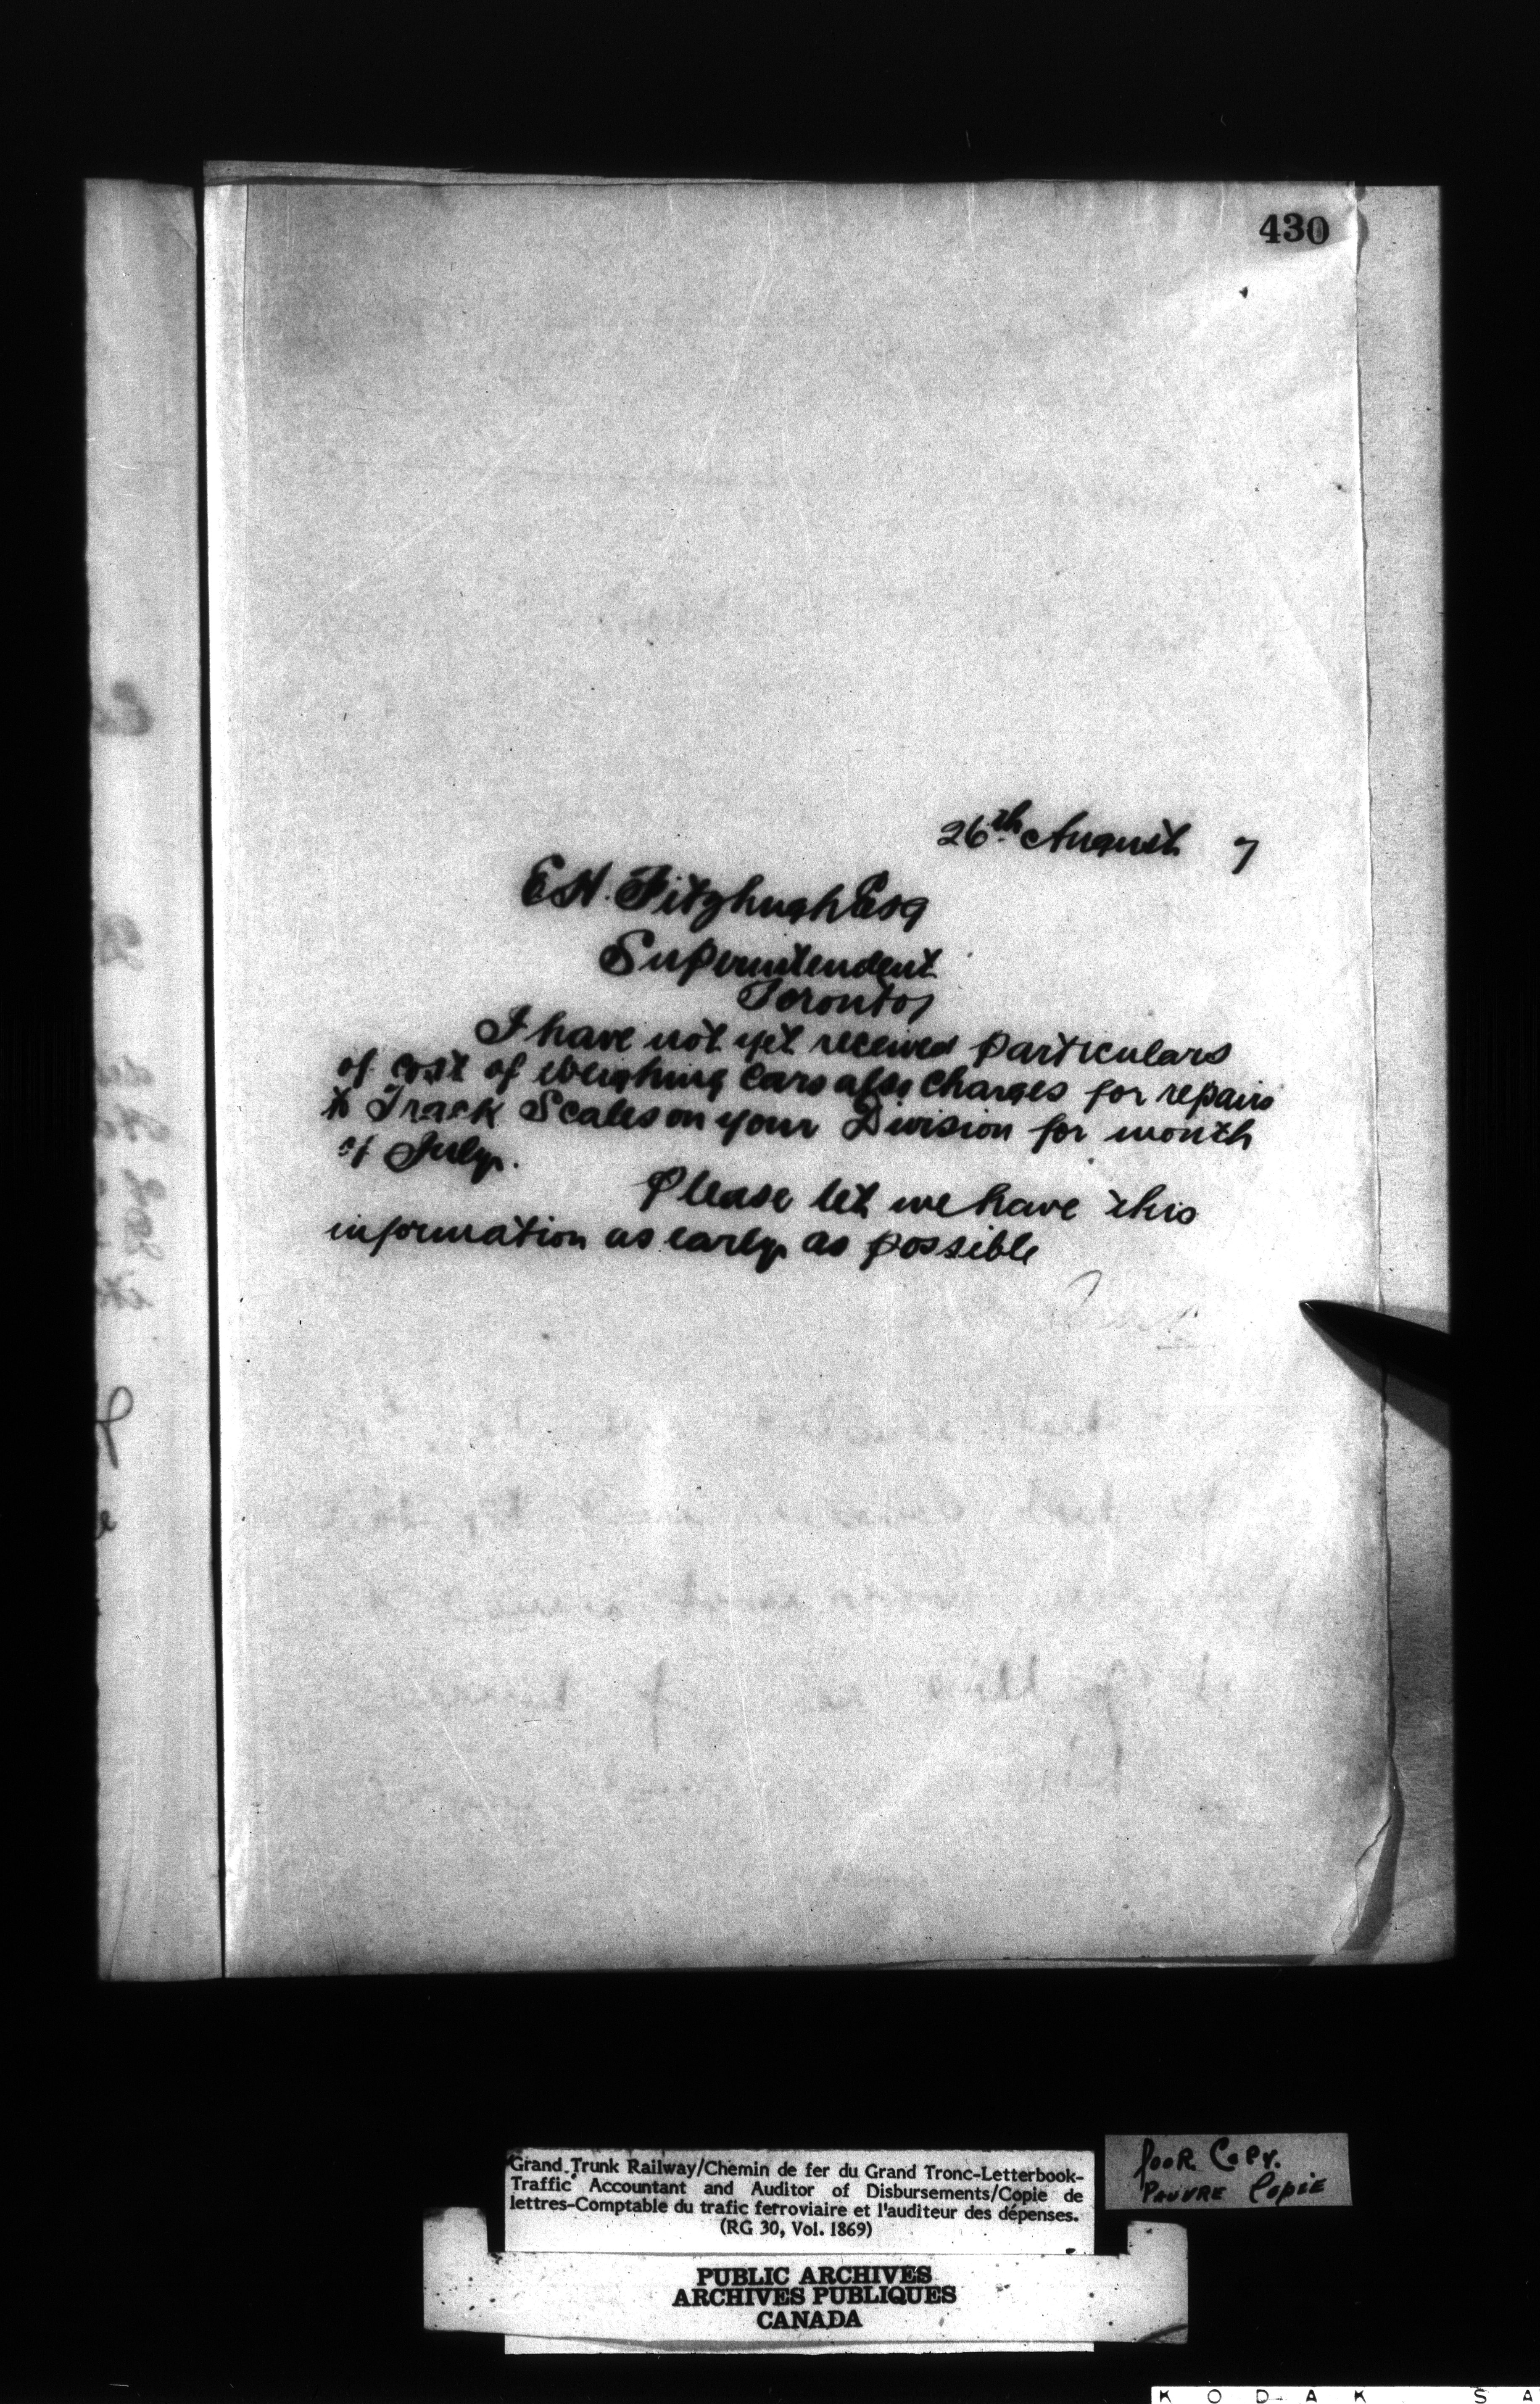 430
26th August 7
E H. Fitzhugh Esq
Superintendent
Toronto,
I have not yet received particulars
of cost of weighing cars also charges for repairs
to Track Scales on your Division for month
of July.
Please let me have this
information as early as possible
Grand Trunk Railway/Chemin de fer du Grand Tronc-Letterbook-
Traffic Accountant and Auditor of Disbursements/Copie de
lettres-Comptable du trafic ferroviaire et l'auditeur des dépenses.
(RG 30, Vol. 1869)
Poor Copy.
Pauvre Copie
PUBLIC ARCHIVES
ARCHIVES PUBLIQUES
CANADA
KODAK SA